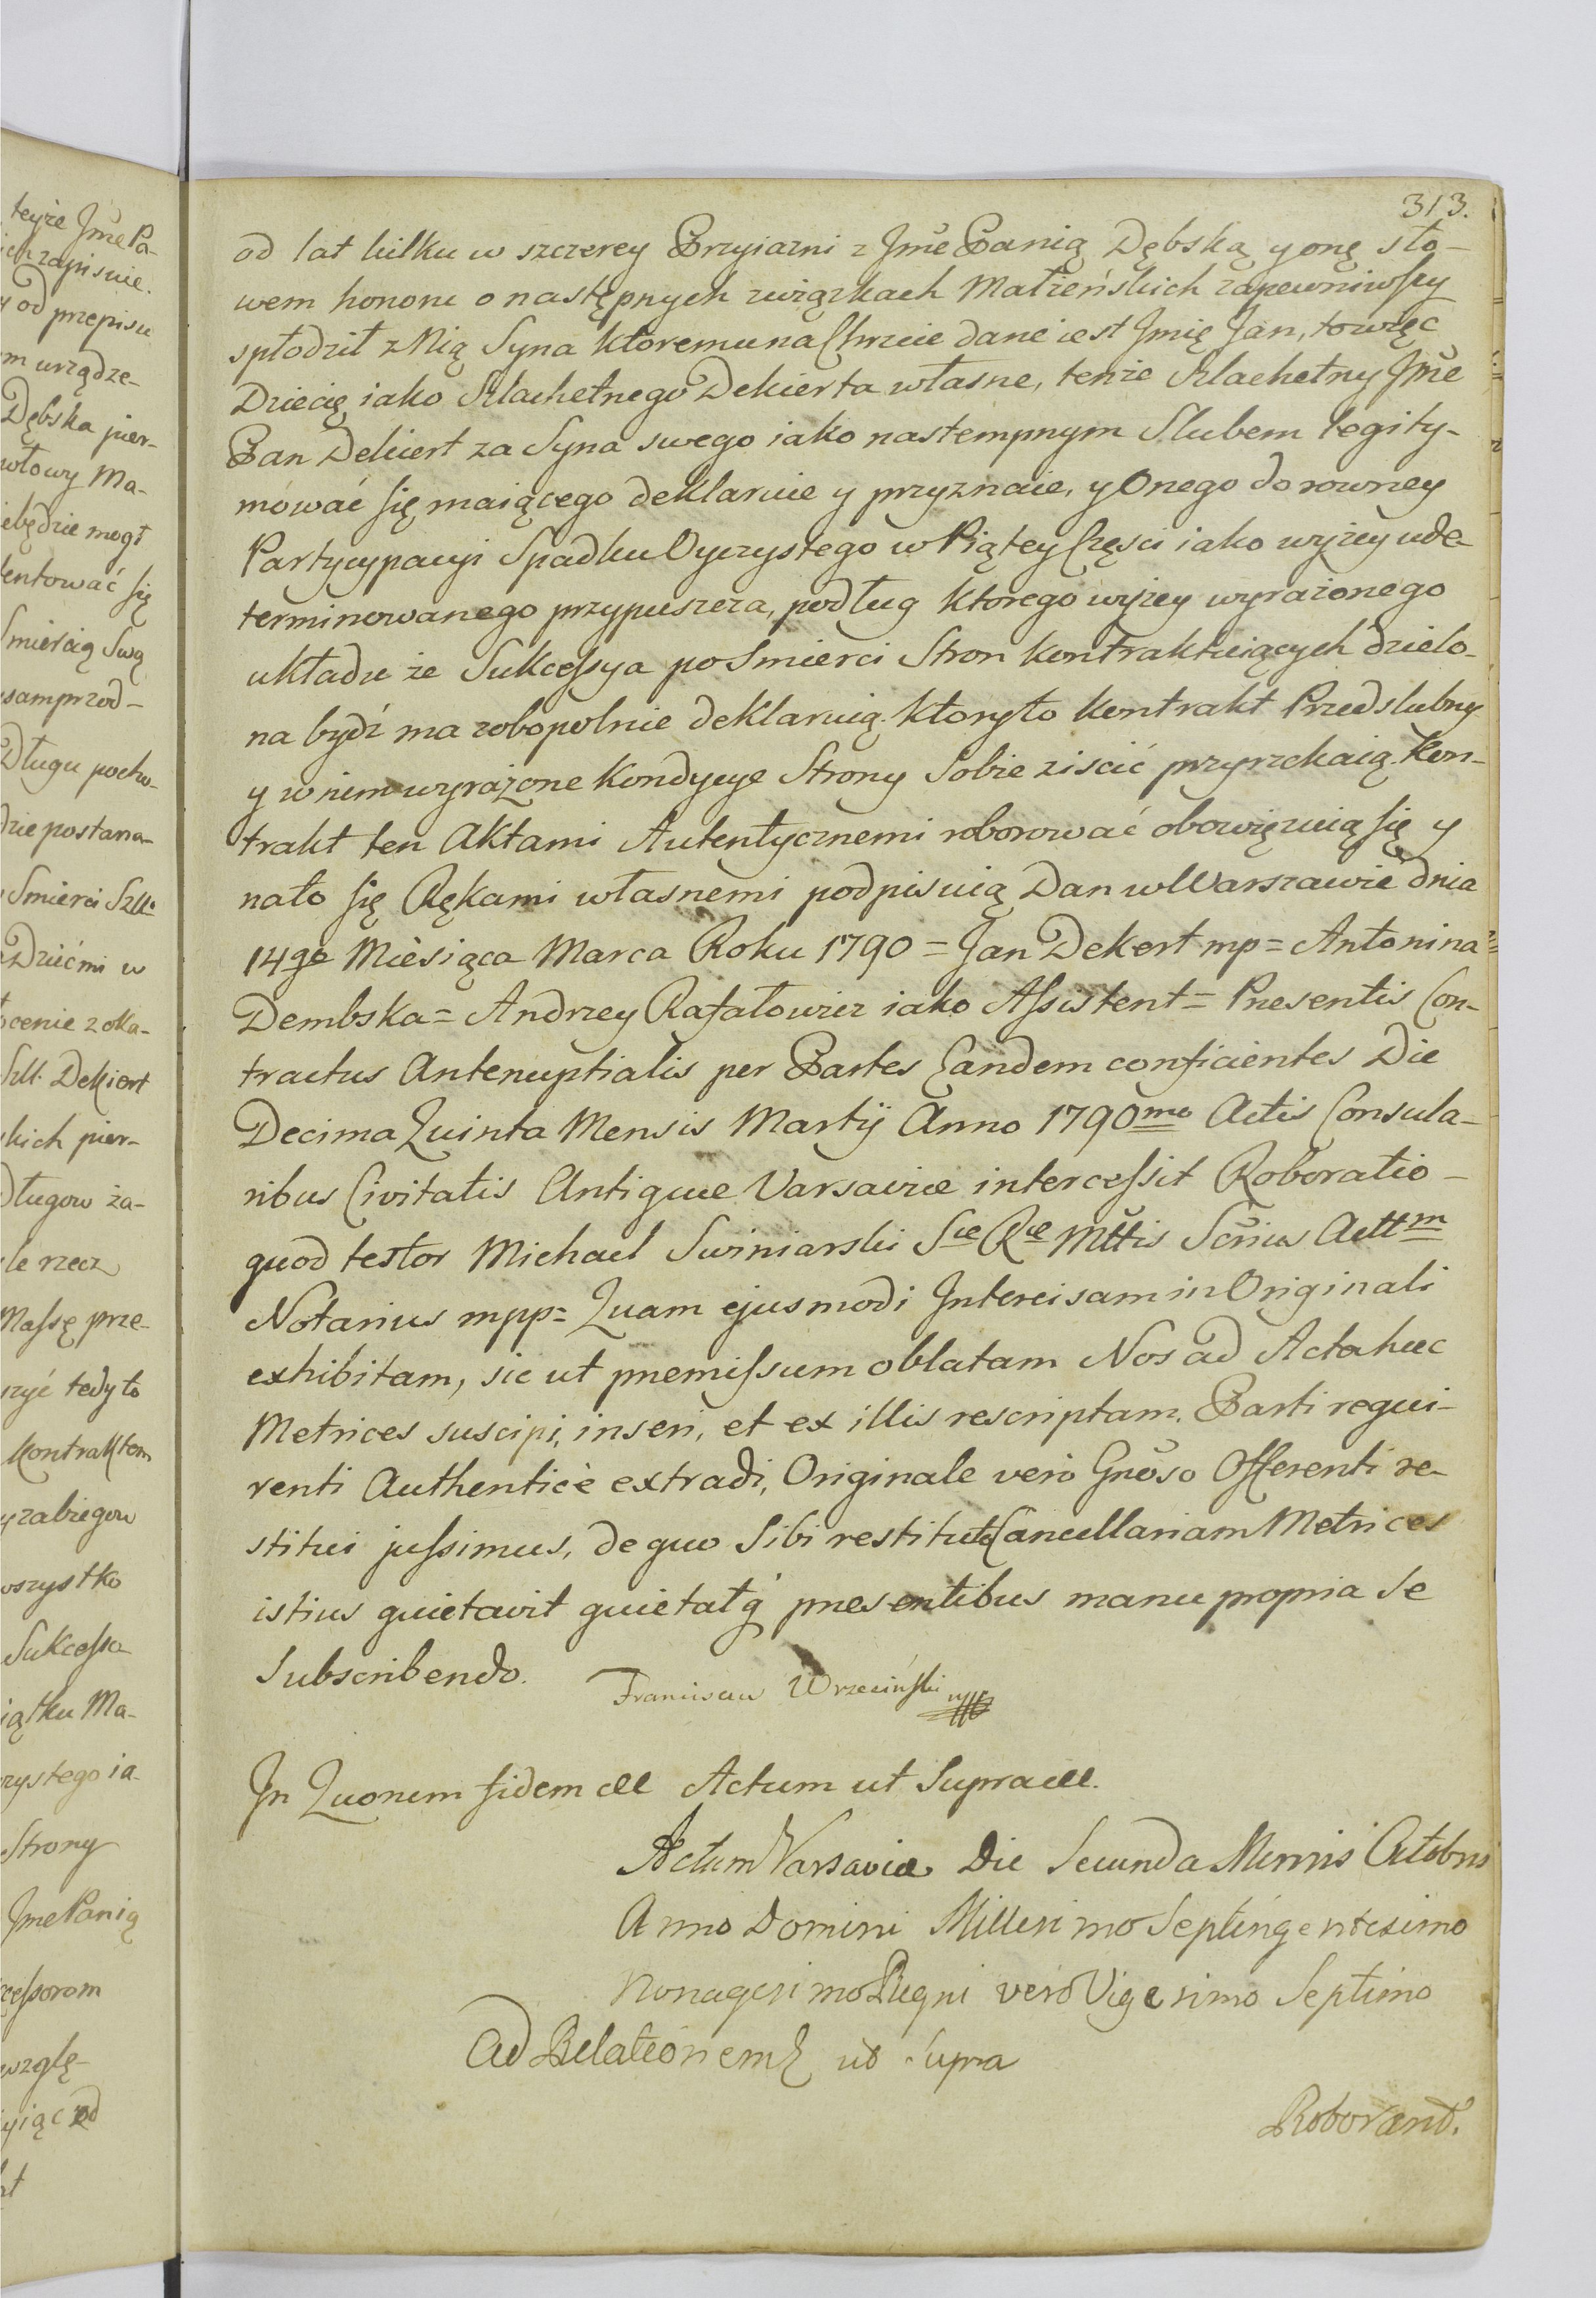 teyże Jme Pa-
ich zapisuie.
y od przepisu
m urządze-
Dębska pier-
włowy Ma-
iebędzie mogł
tentować się
Smiercią Swą
samprzod-
Długu pocho-
dzie postana-
Smierci Szll:
Dziećmi w
ocenie z oka-
Szll. Dekiert
kich pier-
Długow za-
le rzecz
Massę prze-
rzyć tedy to
Kontraktem
y zabiegow
wszystko
Sukcesso-
iątku Ma-
rzystego ia-
Strony
Jme Panią
cessorom
wzglę-
yiąc od
313.
od lat kilku w szczerey Przyiazni z Jme Panią Dębską y onę sło-
wem honoru o następnych związkach Małżeńskich zapewniwszy
spłodził z Nią Syna ktoremu na Chrzcie dane iest Jmię Jan, to więc
Dziecię iako Szlachetnego Dekierta własne, tenże Szlachetny Jme
Pan Dekiert za Syna swego iako nastempnym Slubem legity-
mować się maiącego deklaruie y przyznaie, y Onego do rowney
Partycypacyi Spadku Oyczystego w Piątey Części iako wyżey ude-
terminowanego przypuszcza, podług ktorego wyżey wyrażonego
układu że Sukcessya po Smierci Stron kontraktuiących dzielo-
na bydź ma zobopolnie deklaruią. Ktory to Kontrakt Przedslubny
y w nim wyrażone Kondycye Strony Sobie ziscić przyrzekaią. Kon-
trakt ten Aktami Autentycznemi roborować obowięzuią się y
na to się Rękami własnemi podpisuią Dan w Warszawie dnia
14go Miesiąca Marca Roku 1790 = Jan Dekert mp = Antonina
Dembska = Andrzey Rafałowicz iako Assistent = Presentis Con-
tractus Antenuptialis per Partes Eandem conficientes Die
Decima Quinta Mensis Martij Anno 1790mo Actis Consula-
ribus Civitatis Antiquae Varsaviae intercessit Roboratio -
quod testor Michael Swiniarski Sae Rae Mttis Scrius Acttm
Notarius mpp = Quam ejusmodi Intercisam in Originali
exhibitam, sic ut premissum oblatam Nos ad Acta haec
Metrices suscipi, inseri, et ex illis rescriptam. Parti requi-
renti Authenticè extradi, Originale verò Gnoso Offerenti re-
stitui jussimus, de quo Sibi restituto Cancellariam Metrices
istius quietavit quietatq presentibus manu propria Se
Subscribendo.
Franciscus Wrzeciński mpp
In Quorum fidem ett Actum ut Supra ett.
Actum Varsaviae Die Secunda Mensis Octobris
Anno Domini Millesimo Septingentesimo
Nonagesimo Regni verò Vigesimo Septimo
Ad Relationem ut supra
Roborand.